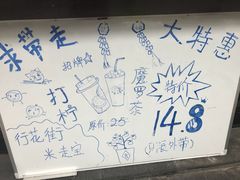 求带走
大特惠
招牌☆
打柠
魔罗茶
特价
14.8
原价:25
行花街
米走宝
(只限外带)